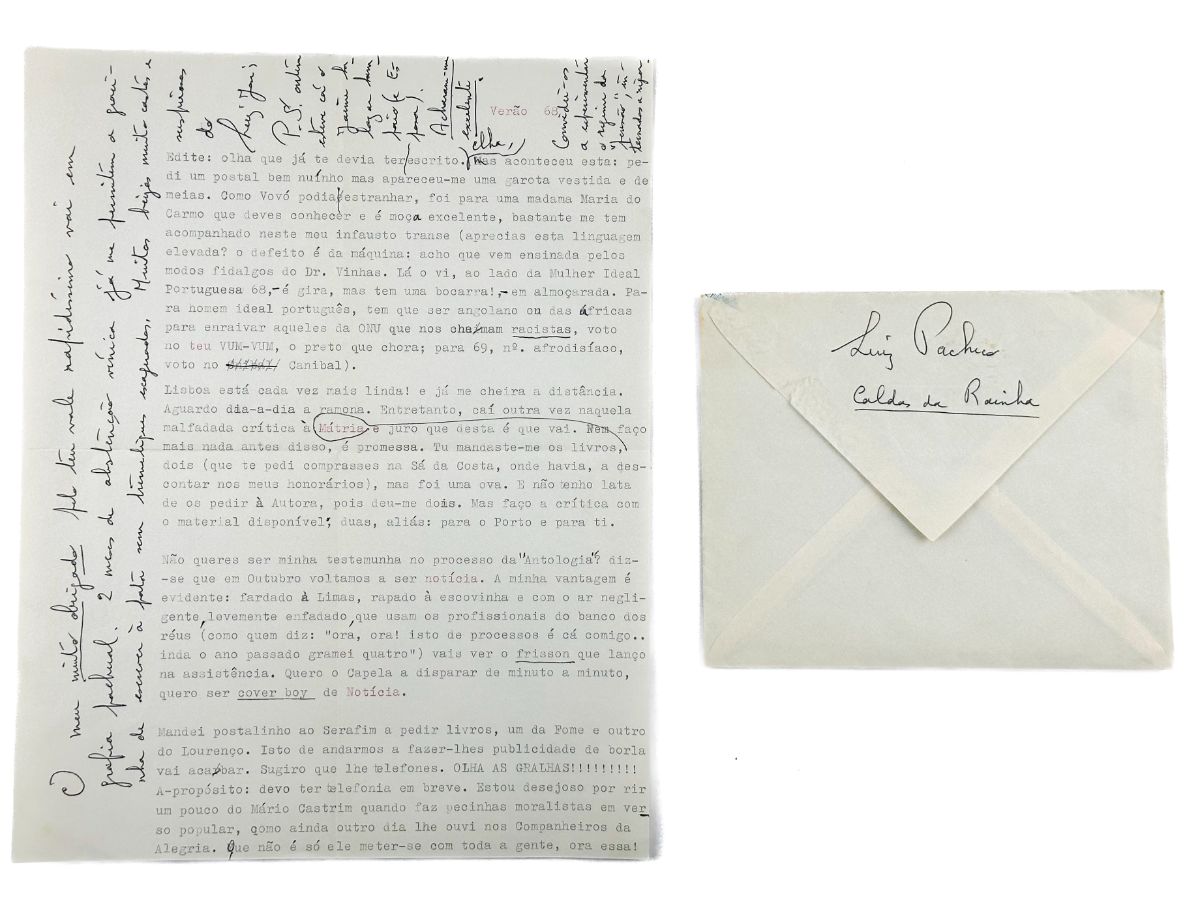 Verão 68
Edite: olha que já te devia ter escrito. Mas aconteceu esta: pe-
di um postal bem nuínho mas apareceu-me uma garota vestida e de
meias. Como Vovó podia estranhar, foi para uma madama Maria do
Carmo que deves conhecer e é moça excelente, bastante me tem
acompanhado neste meu infausto transe (aprecias esta linguagem
elevada? o defeito é da máquina: acho que vem ensinada pelos
modos fidalgos do Dr. Vinhas. Lá o vi, ao lado da Mulher Ideal
Portuguesa 68,-é gira, mas tem uma bocarra!,-em almoçarada. Pa-
ra homem ideal português, tem que ser angolano ou das áfricas
para enraivar aqueles da ONU que nos chamam racistas, voto
no teu VUM-VUM, o preto que chora; para 69, nº. afrodisíaco,
voto no Canibal).
Lisboa está cada vez mais linda! e já me cheira a distância.
Aguardo dia-a-dia a ramona. Entretanto, caí outra vez naquela
malfadada crítica à Mátria e juro que desta é que vai. Nem faço
mais nada antes disso, é promessa. Tu mandaste-me os livros,
dois (que te pedi comprasses na Sá da Costa, onde havia, a des-
contar nos meus honorários), mas foi uma ova. E não tenho lata
de os pedir à Autora, pois deu-me dois. Mas faço a crítica com
o material disponível; duas, aliás: para o Porto e para ti.
Não queres ser minha testemunha no processo da "Antologia"? diz-
-se que em Outubro voltamos a ser notícia. A minha vantagem é
evidente: fardado à Limas, rapado à escovinha e com o ar negli-
gente, levemente enfadado, que usam os profissionais do banco dos
réus (como quem diz: "ora, ora! isto de processos é cá comigo..
inda o ano passado gramei quatro") vais ver o frisson que lanço
na assistência. Quero o Capela a disparar de minuto a minuto,
quero ser cover boy de Notícia.
Mandei postalinho ao Serafim a pedir livros, um da Fome e outro
do Lourenço. Isto de andarmos a fazer-lhes publicidade de borla
vai acabar. Sugiro que lhe telefones. OLHA AS GRALHAS!!!!!!!!!
A-propósito: devo ter telefonia em breve. Estou desejoso por rir
um pouco do Mário Castrim quando faz pecinhas moralistas em ver
so popular, como ainda outro dia lhe ouvi nos Companheiros da
Alegria. Que não é só ele meter-se com toda a gente, ora essa!
O meu muito obrigado pelo teu vale rapidíssimo vai em
grafia pachual. 2 meses de abstenção vínica já me permitem a graci-
nha de escrever à pata sem trinueliques escagaçados. Muitos beijos muito castos e
suspirosos
do
Luiz José
P.S. ontem
esteve cá o
Jaime
Acharam-me
excelente.
olha,
Convidei-os
a experimentar
o regime da
Luiz Pacheco
Caldas da Rainha